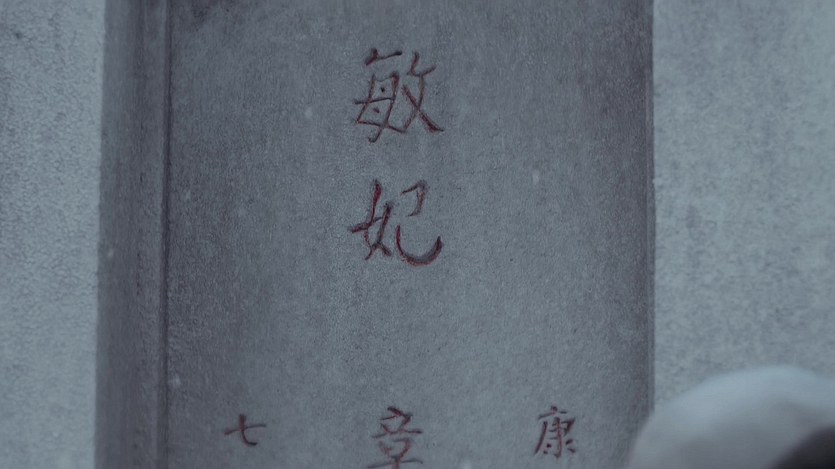 康
敏妃
章
七